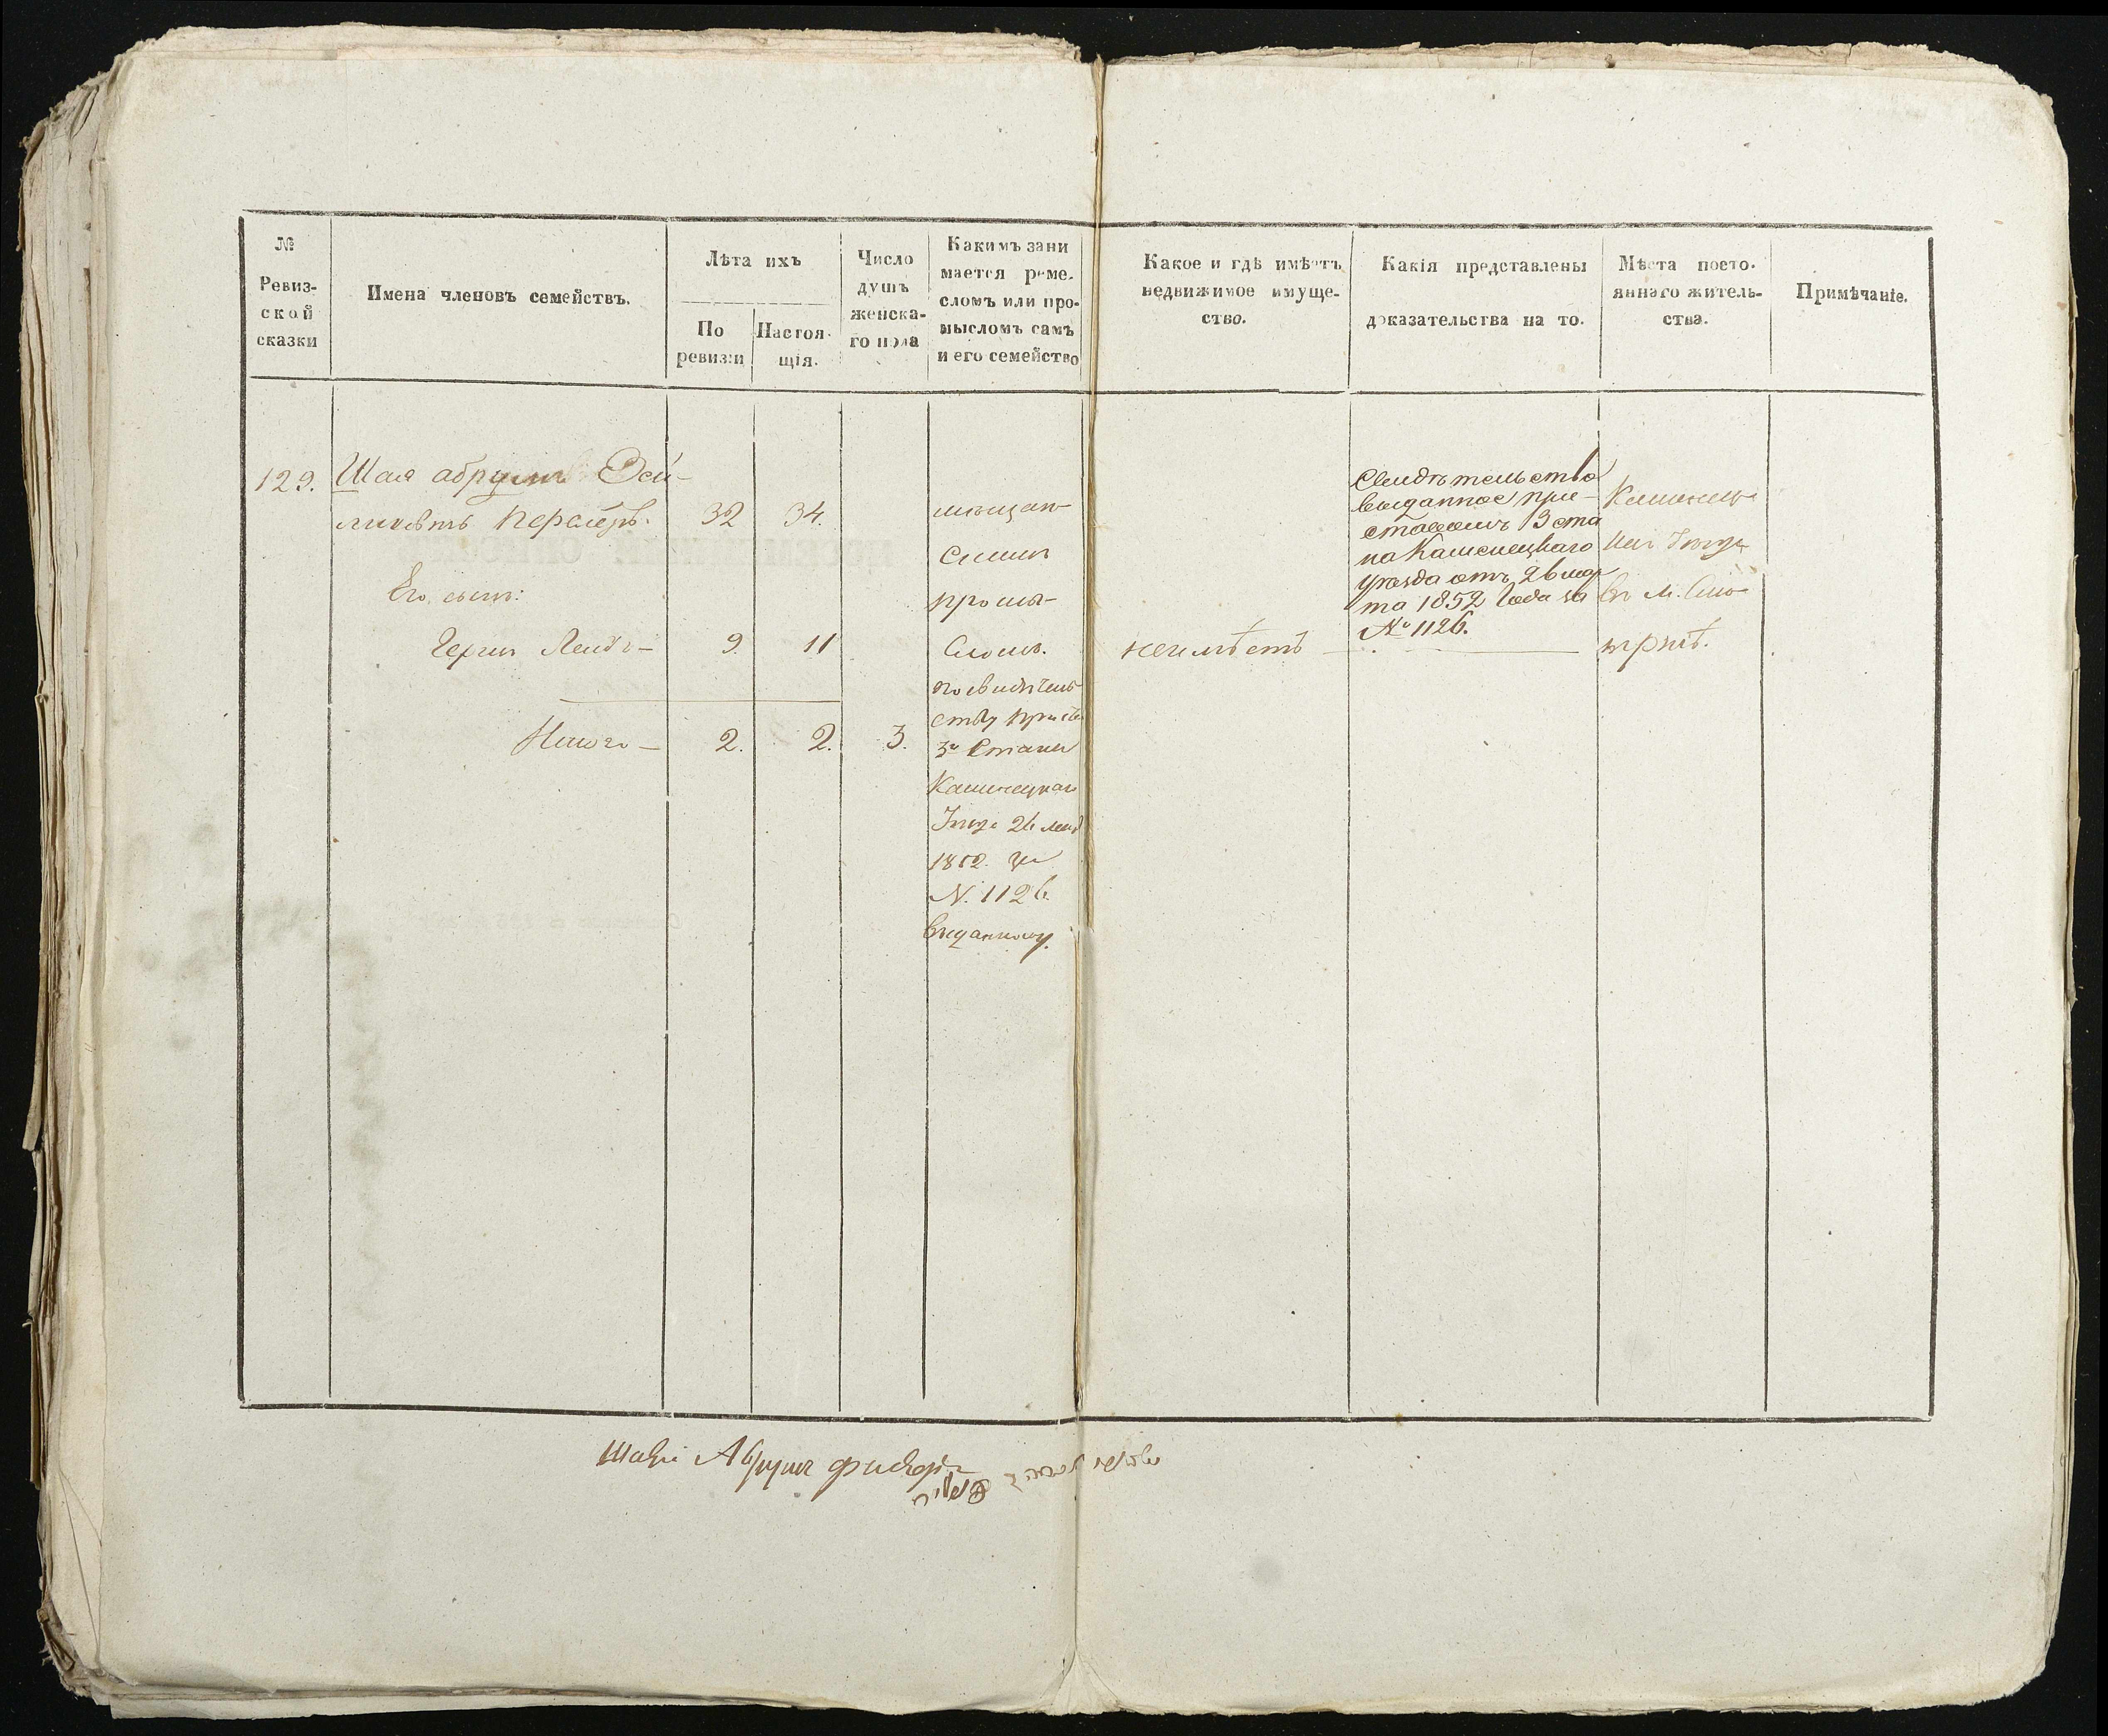 №
Ревиз-
ской
сказки
Имена членовъ семействъ.
Лѣта ихъ
По
ревизіи
Настоя-
щія.
Число
душъ
женска-
го пола
Какимъ зани
мается реме-
сломъ или про-
мысломъ самъ
и его семейство
Какое и гдѣ имѣетъ
недвижимое имуще-
ство.
Какія представлены
доказательства на то.
Мѣста посто-
яннаго житель-
ства.
Примѣчаніе.
129. Шая абрумъ
32 34.
Его сынъ:
9. 11
Итого — 2. 2. 3.
мѣщан-
скимъ
промы-
сломъ.
по свидѣтель-
ству
3го Стана
Каменецкаго
1852. за
N. 1126
выданному.
неимѣетъ
Свидѣтельство
выданное при-
ставомъ 3 ста
на Каменецкаго
уѣзда отъ 26 мар
та 1852 года за
№ 1126.
Каменец-
въ м. Смо-
тричѣ.